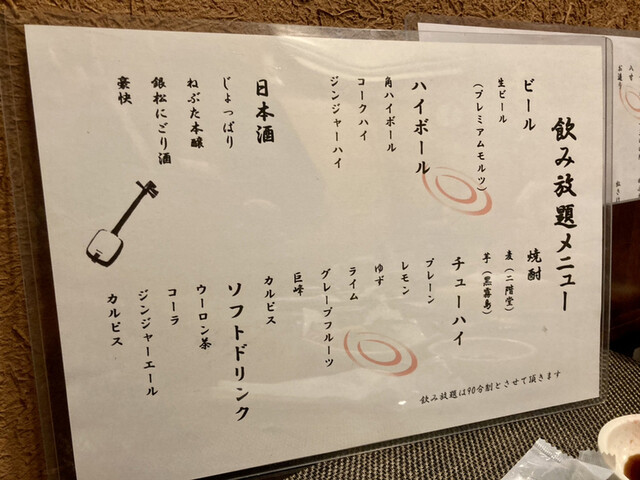 飲み放題メニュー
ビール
生ビール
(プレミアムモルツ)
ハイボール
角ハイボール
コークハイ
ジンジャーハイ
日本酒
じょっぱり
ねぶた本醸
銀松にごり酒
豪快
焼酎
麦(二階堂)
芋(黒霧島)
チューハイ
プレーン
レモン
ゆず
ライム
グレープフルーツ
巨峰
カルピス
ソフトドリンク
ウーロン茶
コーラ
ジンジャーエール
カルピス
飲み放題は90分制とさせて頂きます